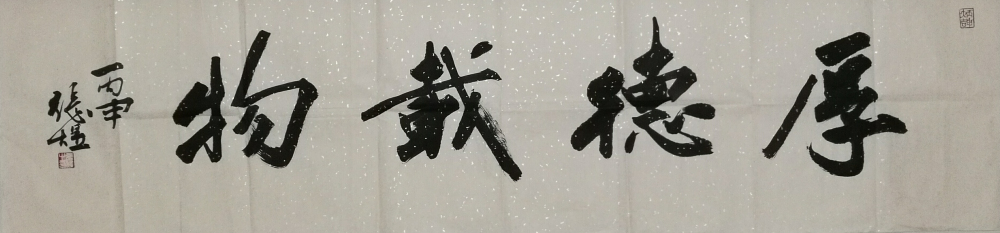 厚德載物
丙申
張煜